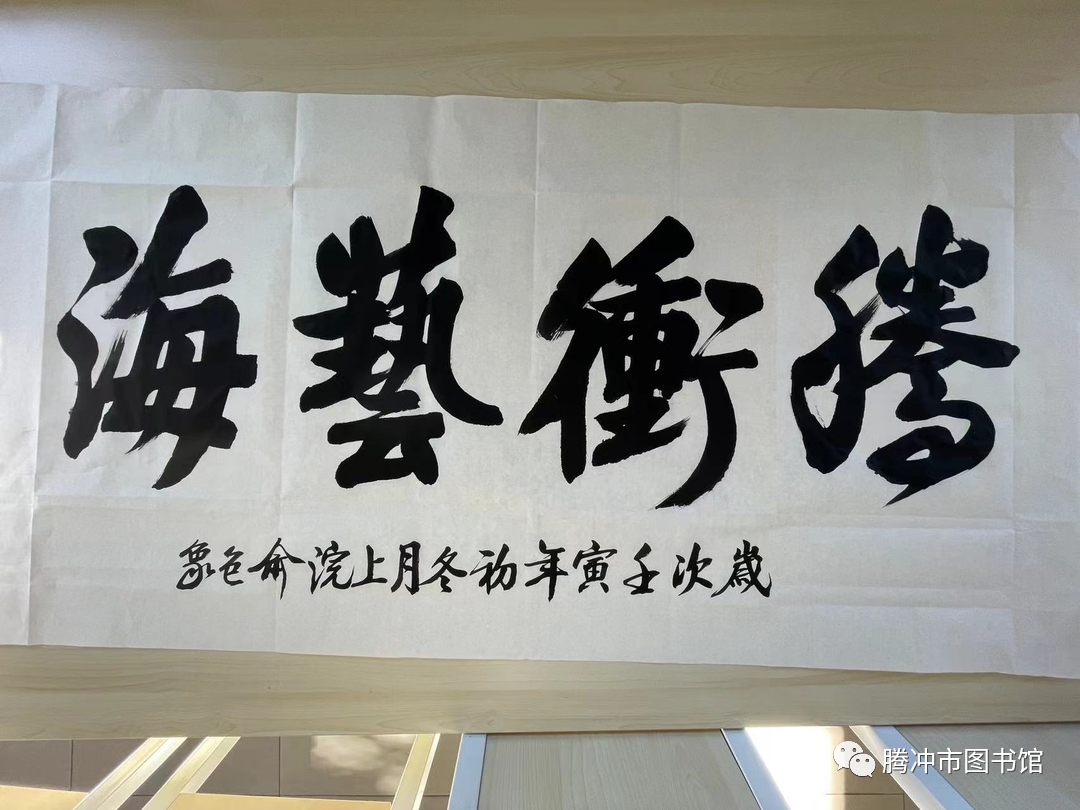 騰衝藝海
歲次壬寅年初冬月上浣俞包象
腾冲市图书馆